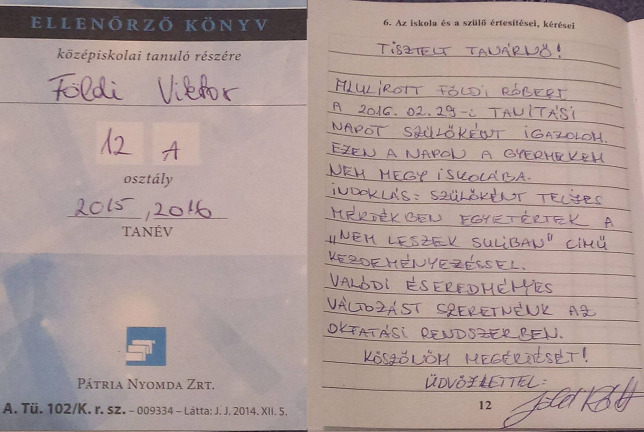 ELLENŐRZŐ KÖNYV
középiskolai tanuló részére
Földi Viktor
12 A
osztály
2015, 2016
TANÉV
PÁTRIA NYOMDA ZRT.
A. Tü. 102/K. r. sz. – 009334 – Látta: J. J. 2014. XII. 5.
6. Az iskola és a szülő értesítései, kérései
TISZTELT TANÁRNŐ!
ALULÍROTT FÖLDI RÓBERT
A 2016. 02. 29-i TANÍTÁSI
NAPOT SZÜLŐKÉNT IGAZOLOM.
EZEN A NAPON A GYERMEKEM
NEM MEGY ISKOLÁBA.
INDOKLÁS: SZÜLŐKÉNT TELJES
MÉRTÉKBEN EGYETÉRTEK A
„NEM LESZEK SULIBAN" CÍMŰ
KEZDEMÉNYEZÉSSEL.
VALÓDI ÉS EREDMÉNYES
VÁLTOZÁST SZERETNÉNK AZ
OKTATÁSI RENDSZERBEN.
KÖSZÖNÖM MEGÉRTÉSÉT!
ÜDVÖZLETTEL:
12